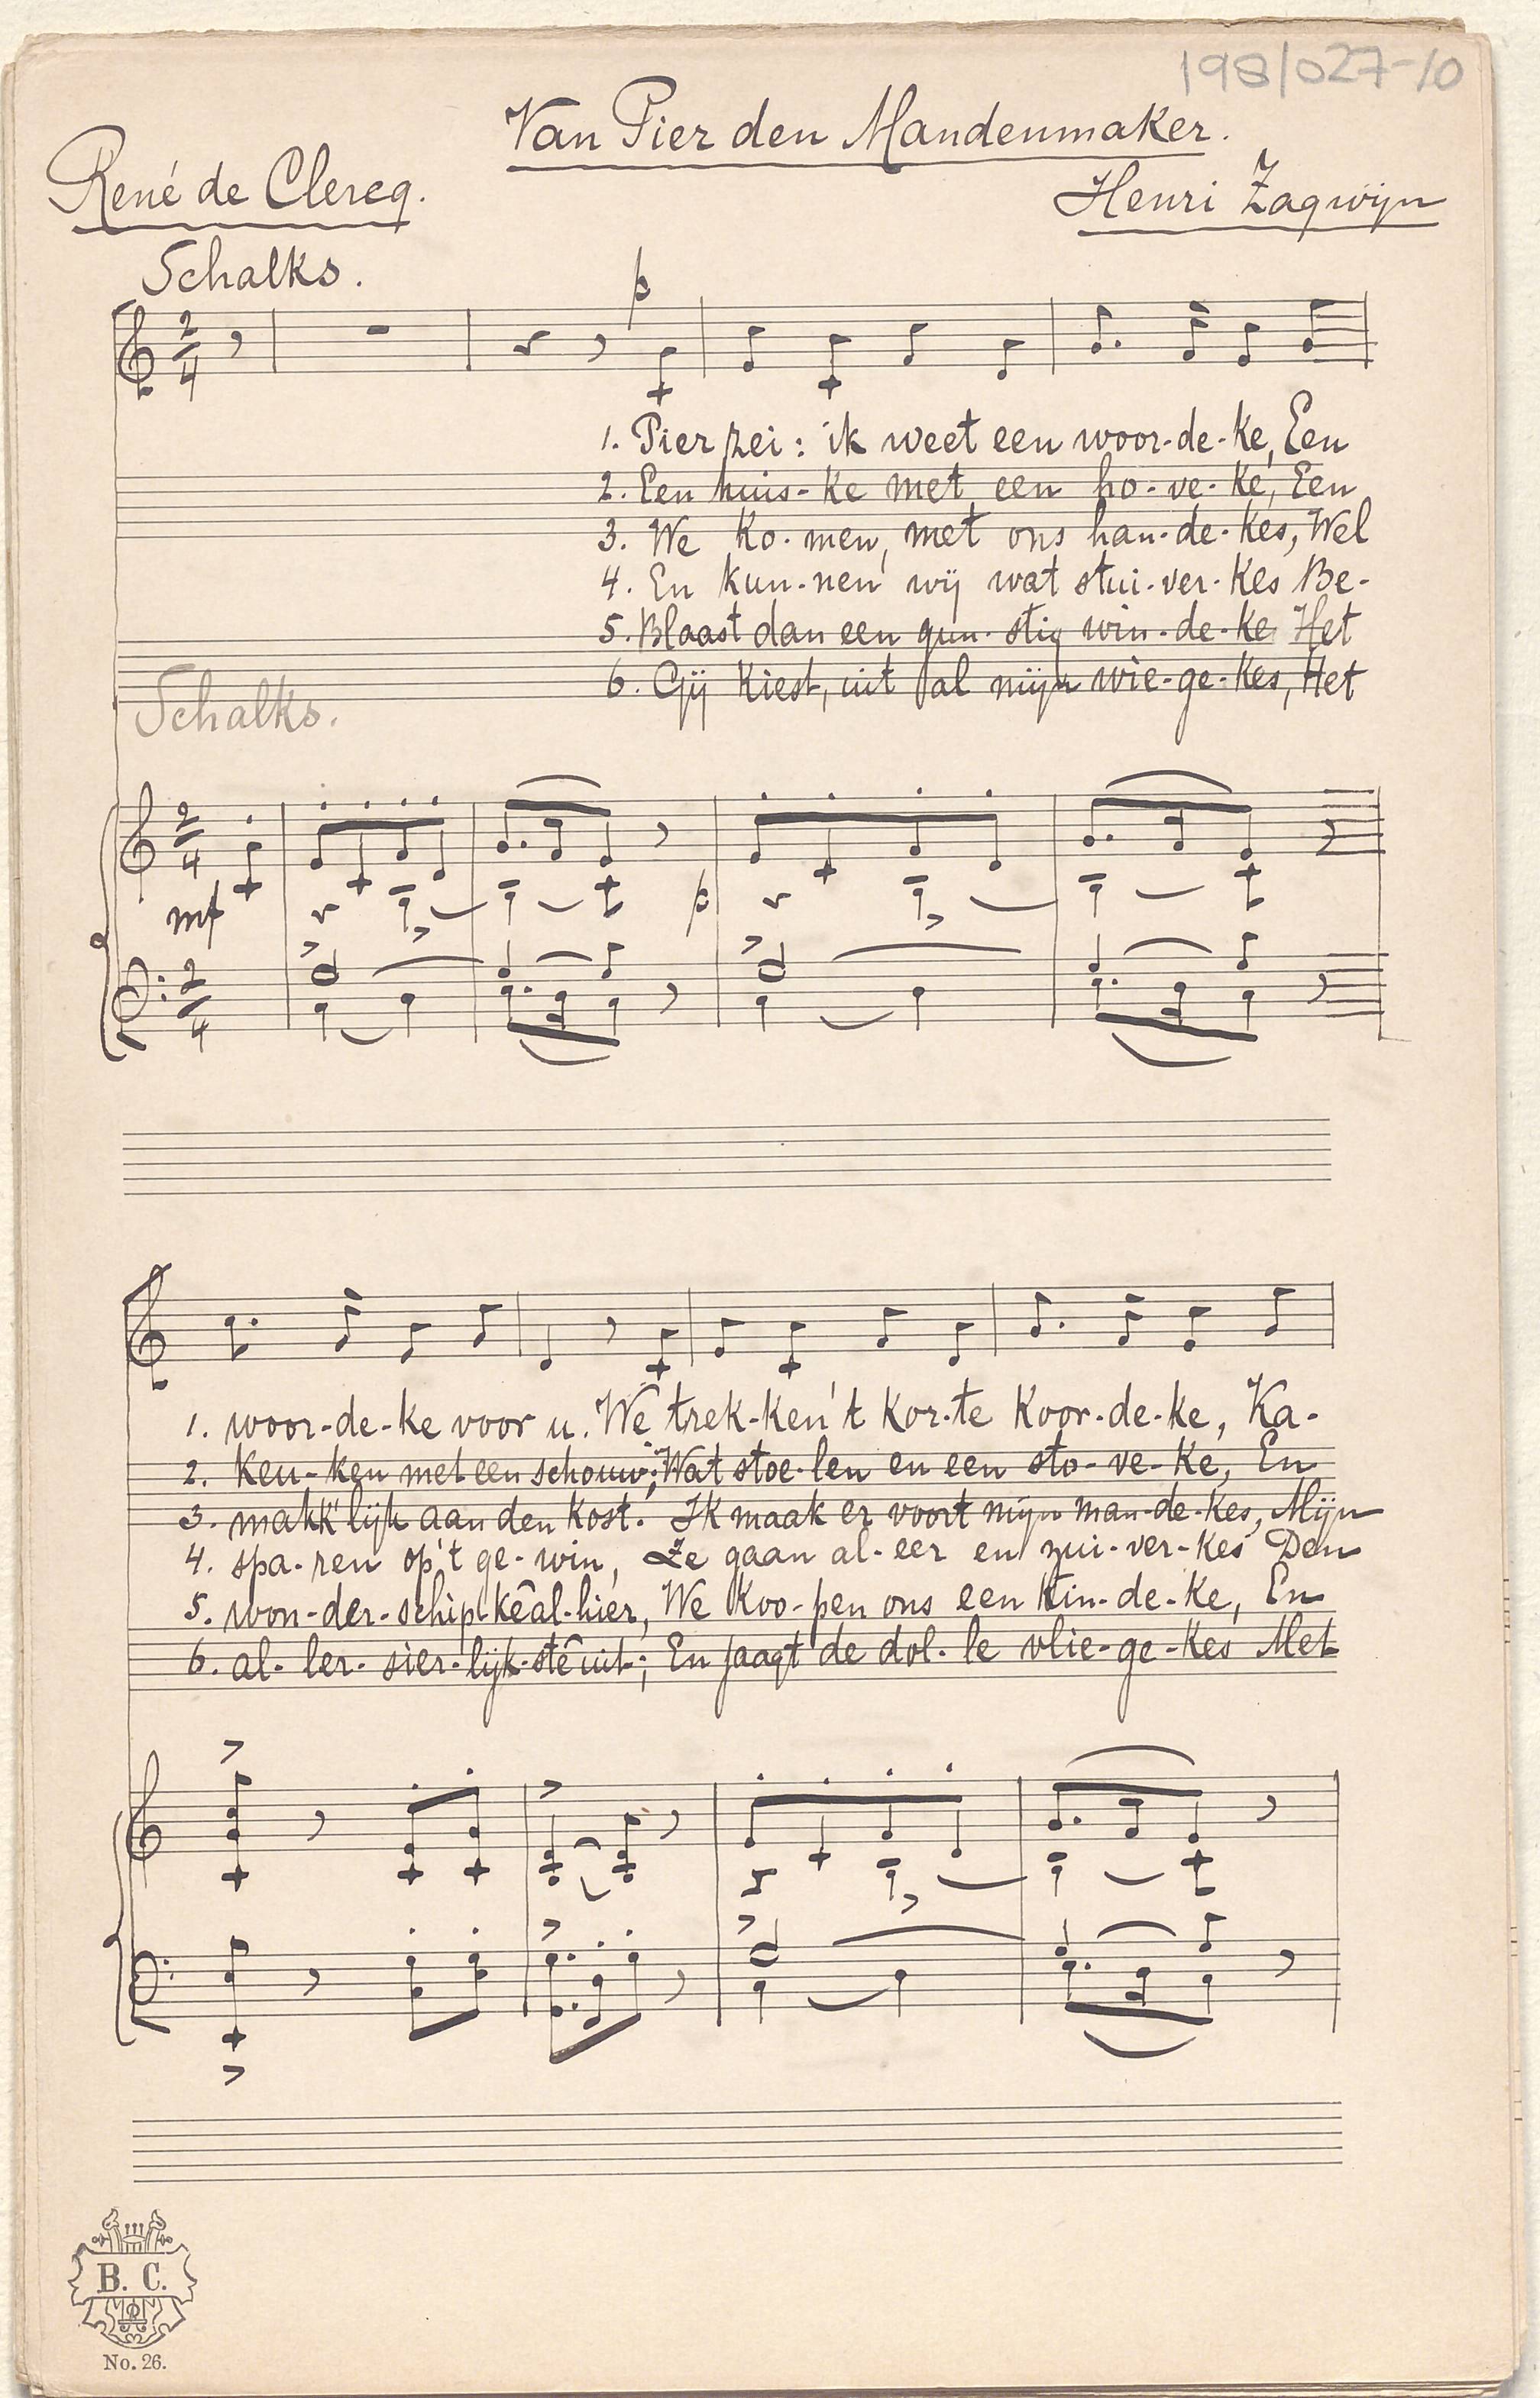 198/027-10
Van Pier den Mandenmaker.
René de Clercq.
Henri Zagwijn
Schalks.
p
2/4
1. Pier zei: ik weet een woor-de-ke, Een
2. Een huis-ke met een ho-ve-ke, Een
3. We ko-men, met ons han-de-kes, Wel
4. En kun-nen wij wat stui-ver-kes Be-
5. Blaast dan een gun-stig win-de-ke Het
6. Gij kiest, uit al mijn wie-ge-kes, Het
Schalks.
2/4
mf
p
2/4
1. woor-de-ke voor u. We trek-ken 't kor-te koor-de-ke, Ka-
2. keu-ken met een schouw; Wat stoe-len en een sto-ve-ke, En
3. makk'lijk aan den kost. Ik maak er voort mijn man-de-kes, Mijn
4. spa-ren op 't ge-win, Ze gaan al-eer en zui-ver-kes Den
5. won-der-schip-ke al-hier, We koo-pen ons een kin-de-ke, En
6. al-ler-sier-lijk-ste uit; En jaagt de dol-le vlie-ge-kes Met
B. C.
No. 26.